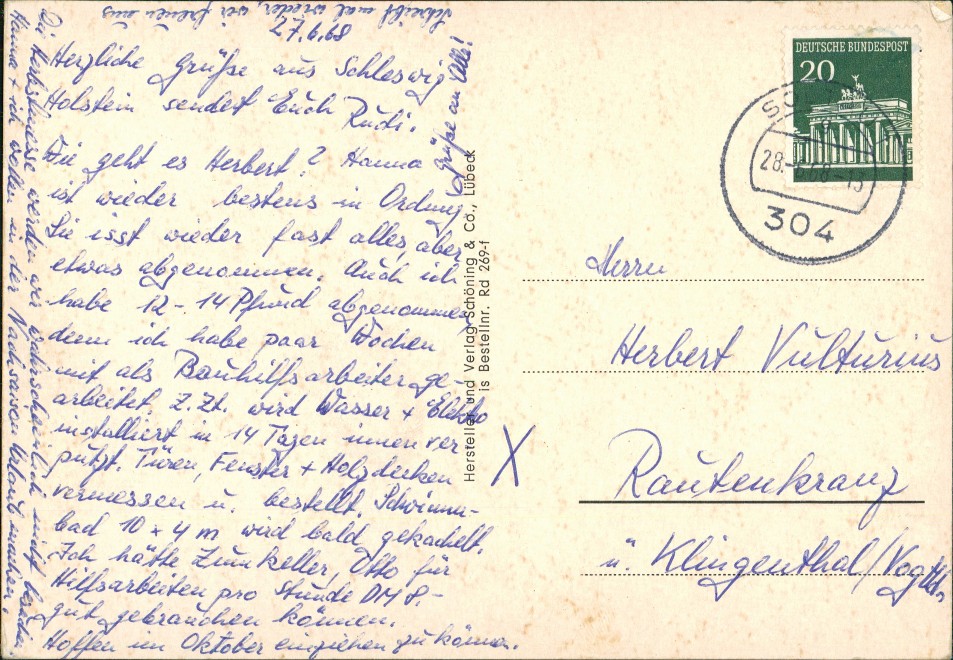 27.6.68
Herzliche Grüße aus Schleswig
Holstein sendet Euch
Rudi.
Wie geht es Herbert? Hanna
ist wieder bestens in Ordnung
Sie isst wieder fast alles, aber
etwas abgenommen. Auch ich
habe 12-14 Pfund abgenommen
denn ich habe paar Wochen
mit als Bauhilfsarbeiter ge-
arbeitet. Z.Zt. wird Wasser + Elektro
installiert in 14 Tagen innen ver
putzt. Türen, Fenster + Holzdecken
vermessen u. bestellt. Schwimm-
bad 10 x 4 m wird bald gekachelt.
Ich hätte Zumkeller, Otto für
Hilfsarbeiten pro Stunde DM 8.-
gut gebrauchen können.
Hoffen im Oktober einziehen zu können.
Die Herbstmesse werden wir wahrscheinlich nicht besuchen
Hanna + ich wollen in der Nachsaison Urlaub machen.
Schreibt mal wieder, wir freuen uns
Grüße an Alle!
Hersteller und Verlag Schöning & Co., Lübeck
is Bestellnr. Rd 269-f
DEUTSCHE BUNDESPOST
20
28.-6.68-13
304
Herrn
Herbert Vulturius
X
Rautenkranz
ü. Klingenthal/Vogtld.